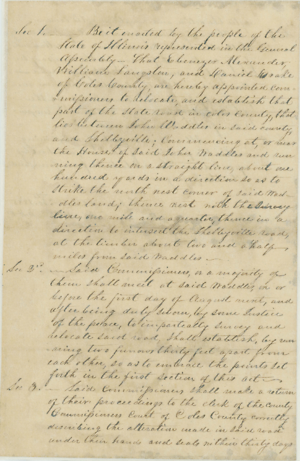 Sec 1. Be it enacted by the people of the
State of Illinois represented in the General
Assembly— That Ebenezer Alexander,
William Langston, and
of Coles County, are hereby appointed com-
missioners to relocate, and establish that
part of the State road in Coles County, that
lies between John Waddles in said county
and Shelbyville; Commencing at, or near
the House of said John Waddles and run
ning thence on a straight line, about one
hundred yards in a direction so as to
strike the north west corner of said Wad-
dles land; thence west with the
line, one mile and a quarter, thence in a
direction to intersect the Shelbyville road,
at the timber about two and a half
miles from said Waddles—
Sec 2d— Said Commissioners, or a majority of
them shall meet at said Waddles, on or
before the first day of August next, and
after being duly sworn, by some Justice
of the peace, to impartially survey and
relocate said road, shall establish, by run
ning two furrows thirty feet apart from
each other, so as to embrace the points set
forth in the first section of this act—
Sec 3.— Said Commissioners shall make a return
of their proceedings to the clerk of the County
Commissioners Court of Coles County
describing the alteration made in said road
under their hands and seals within thirty days